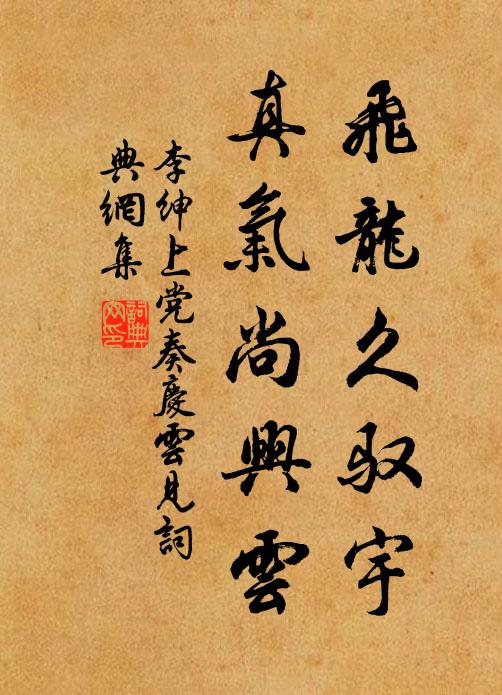 飛龍久馭宇
真氣尚興雲
李紳上党奏慶雲見詞
典網集
詞典
网印